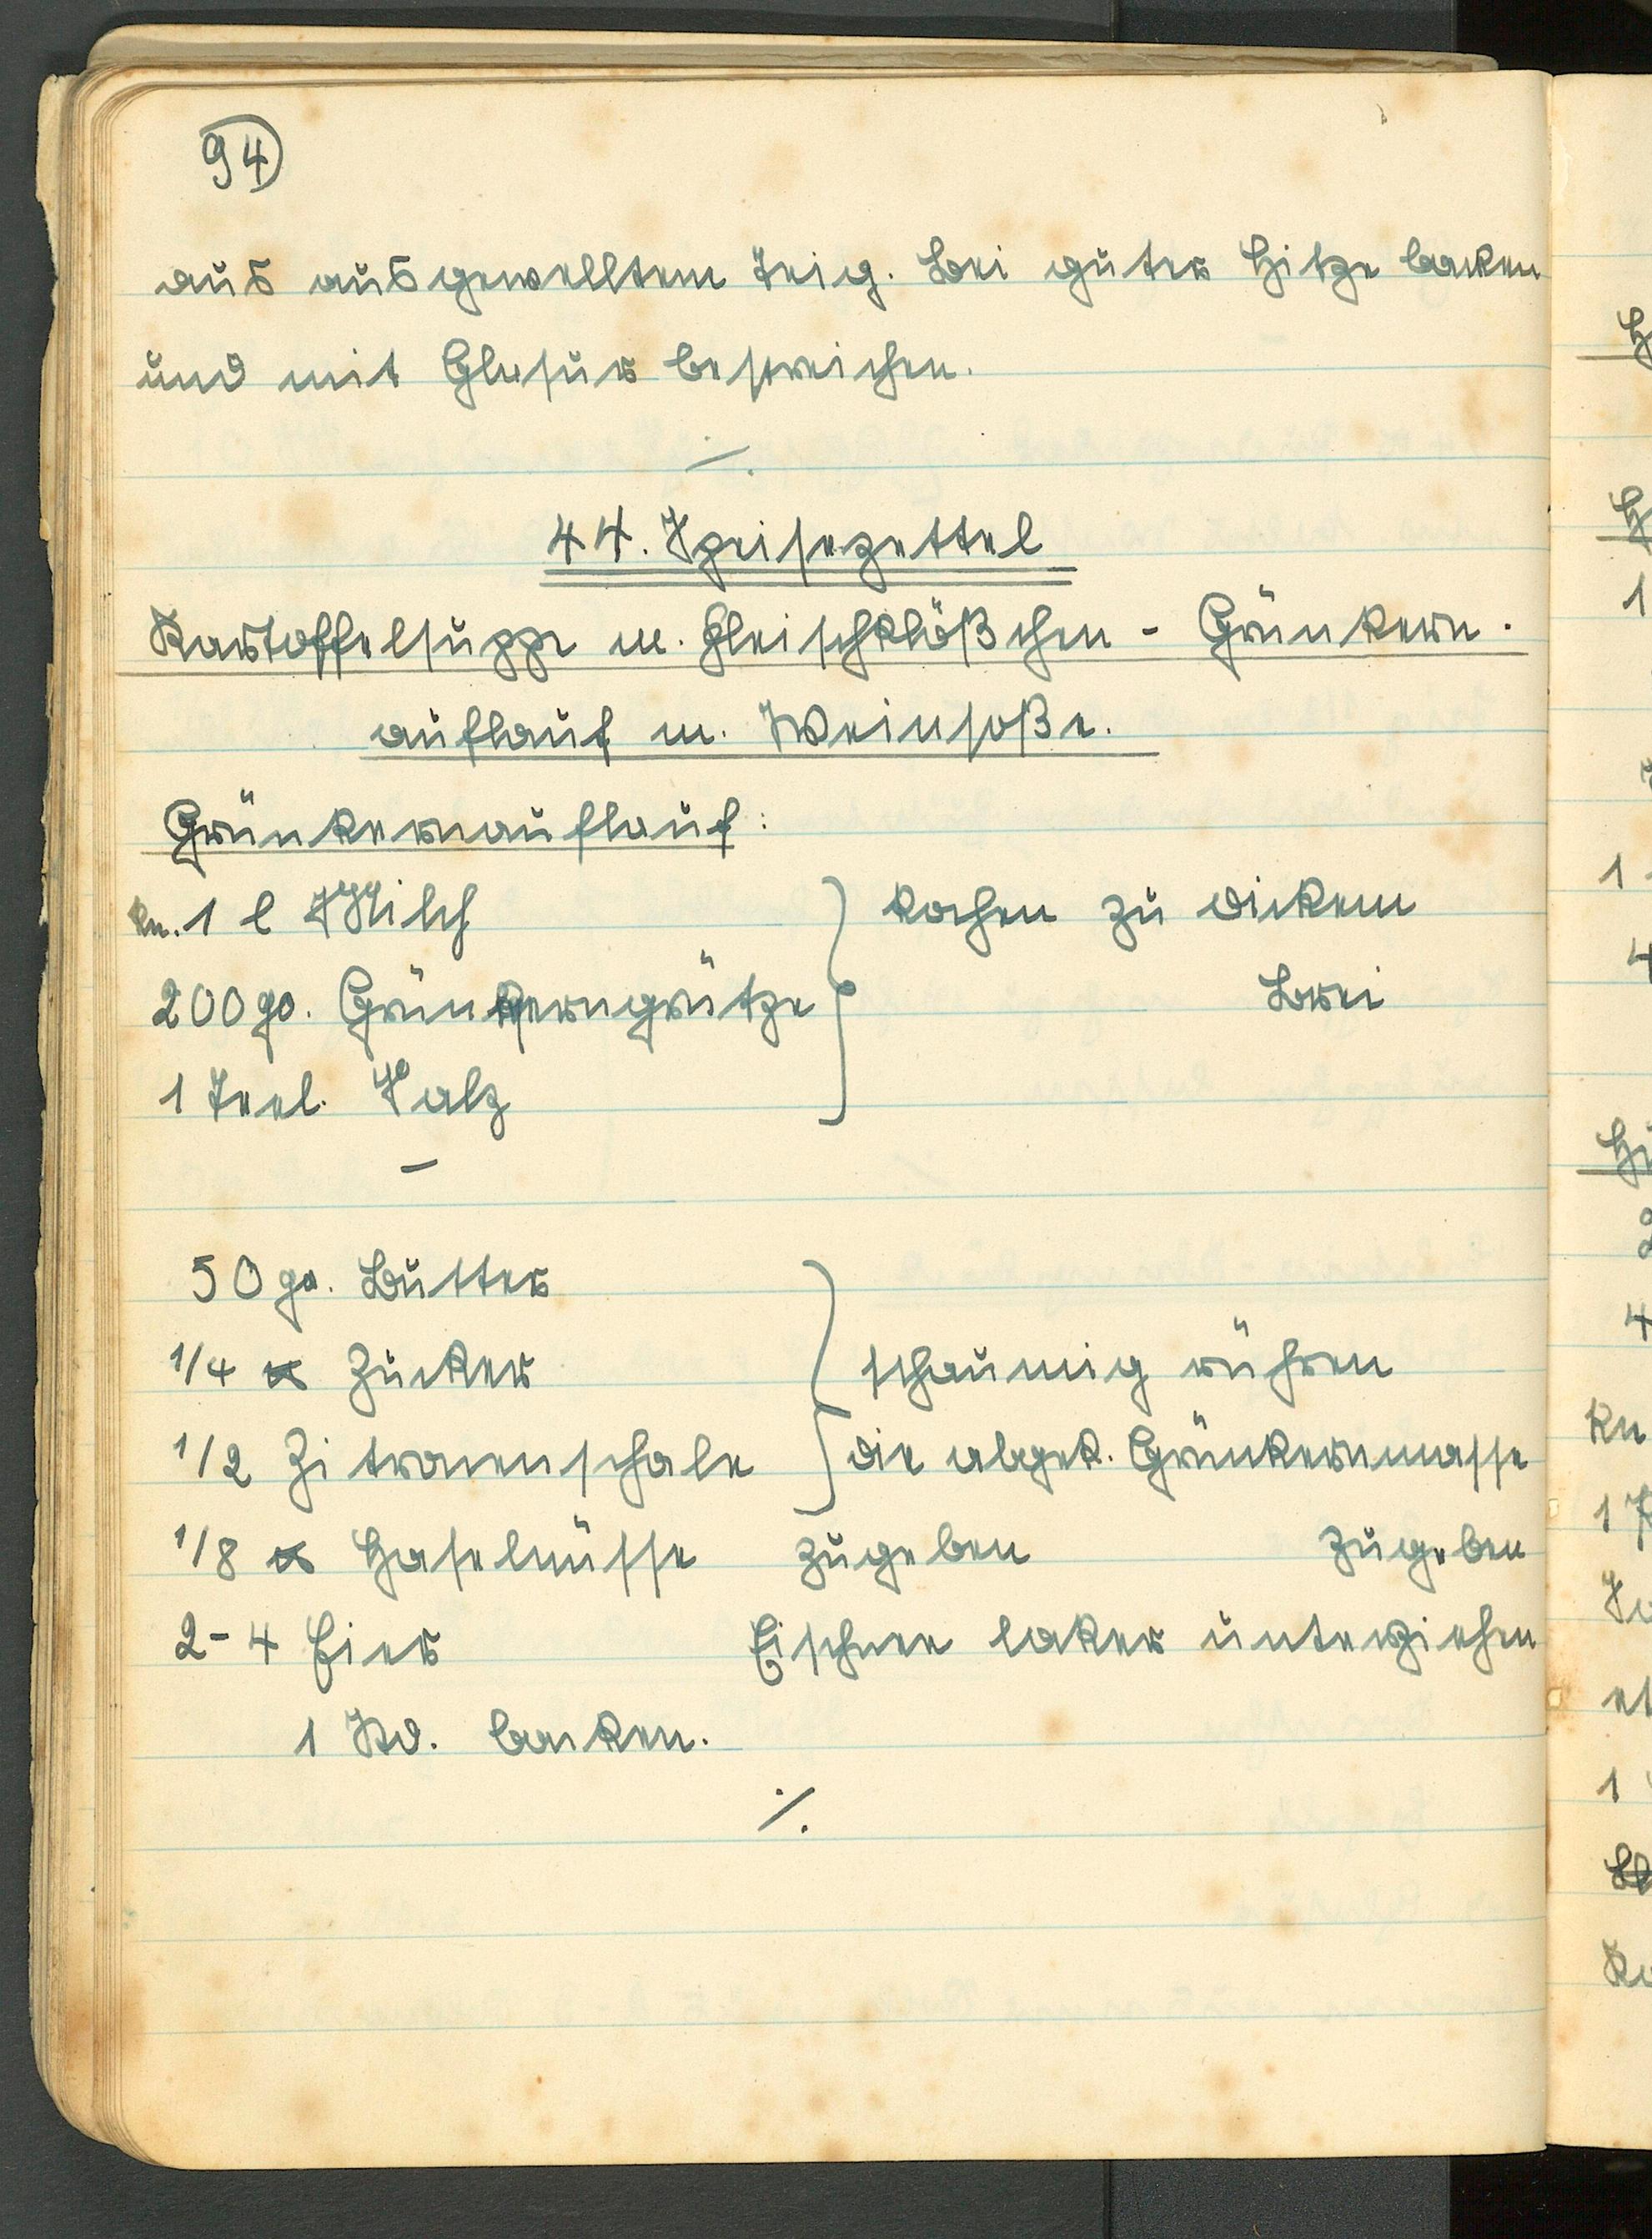 94
aus ausgewelltem Teig. Bei guter Hitze backen
und mit Glasur bestreichen.
44. Speisezettel
Kartoffelsuppe m. Fleischklößchen - Grünkern.
auflauf m. Weinsoße.
Grünkernauflauf:
kn. 1 l Milch } kochen zu dickem
200 gr. Grünkerngrütze Brei
1 Teel. Salz
50 gr. Butter
1/4 ℔ Zucker } schaumig rühren
1/2 Zitronenschale } die abgek. Grünkernmasse
1/8 ℔ Haselnüsse zugeben zugeben
2-4 Eier Eischnee locker unterziehen
1 Std. backen.
./.